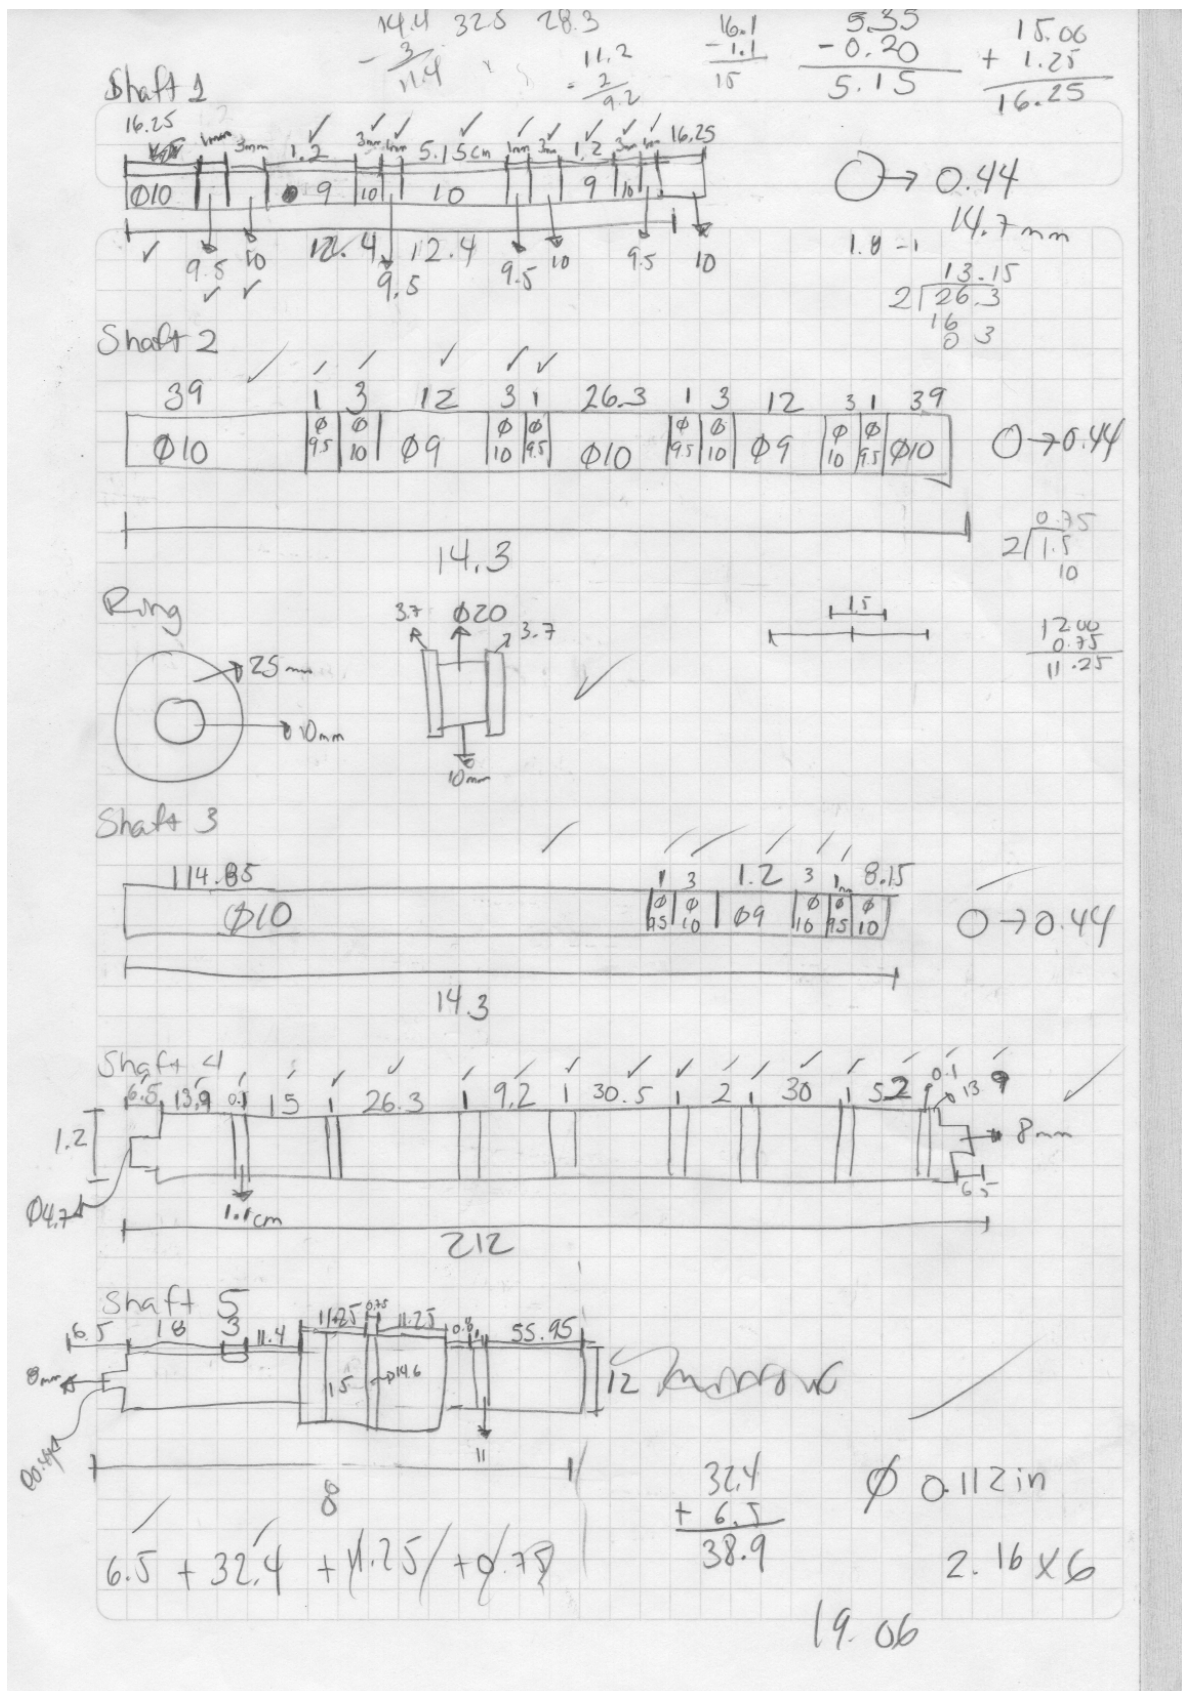 14.4 32.5 28.3
- 3
11.4
11.2
- 2
9.2
16.1
- 1.1
15
5.35
- 0.20
5.15
15.00
+ 1.25
16.25
Shaft 1
16.25 1mm 3mm 1.2 3mm 1mm 5.15cm 1mm 3mm 1.2 3mm 1mm 16.25
Ø10 9 10 10 9 10
9.5 10 12.4 12.4 9.5 9.5 10 9.5 10
→ 0.44
14.7mm
1.8 -1
13.15
2 26.3
16
0 3
Shaft 2
39 1 3 12 3 1 26.3 1 3 12 3 1 39
Ø10 Ø9.5 Ø10 Ø9 Ø10 Ø9.5 Ø10 Ø9.5 Ø10 Ø9 Ø10 Ø9.5 Ø10
→ 0.44
14.3
0.75
2 1.5
10
Ring
25mm
10mm
3.7 Ø20 3.7
10mm
1.5
12.00
0.75
11.25
Shaft 3
114.85 1 3 1.2 3 1m 8.15
Ø10 Ø9.5 Ø10 Ø9 Ø10 Ø9.5 Ø10
→ 0.44
14.3
Shaft 4
6.5 13.9 0.1 15 1 26.3 1 9.2 1 30.5 1 2 1 30 1 52 0.1 13 9
1.2
8mm
6.5
Ø4.7
1.1cm
212
Shaft 5
6.5 18 3 11.4 11.25 0.75 11.25 0.8 1 55.95
8mm 15 Ø14.6 12
11
Ø0.44
8
32.4
+ 6.5
38.9
Ø 0.112in
6.5 + 32.4 + 11.25 + 0.75
2.16 x 6
19.06